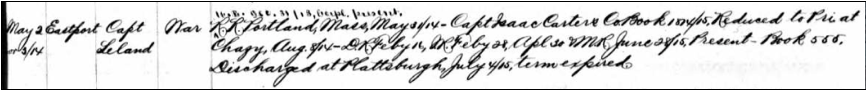 May 2 Eastport Capt War R.R. Portland, Mass, May 31/14 - Capt Isaac Carter's Co Book 1814/15, Reduced to Pri at
or 3/14 Leland Chazy, Aug. 8/14 - D.R. Feby 16, I.R. Feby 28, Apl 30 & M.R. June 28/15, Present - Book 555,
Discharged at Plattsburgh, July 4/15, term expired